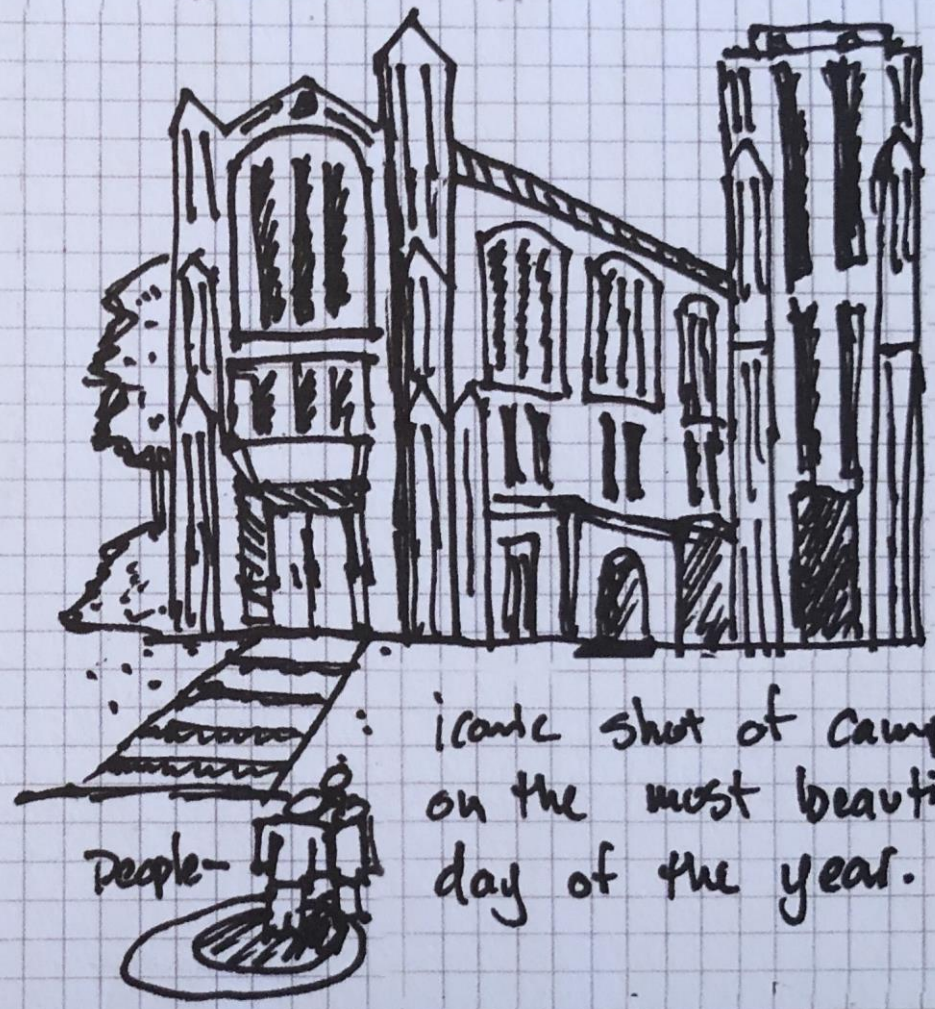 iconic shot of camp
on the most beauti
day of the year.
People-